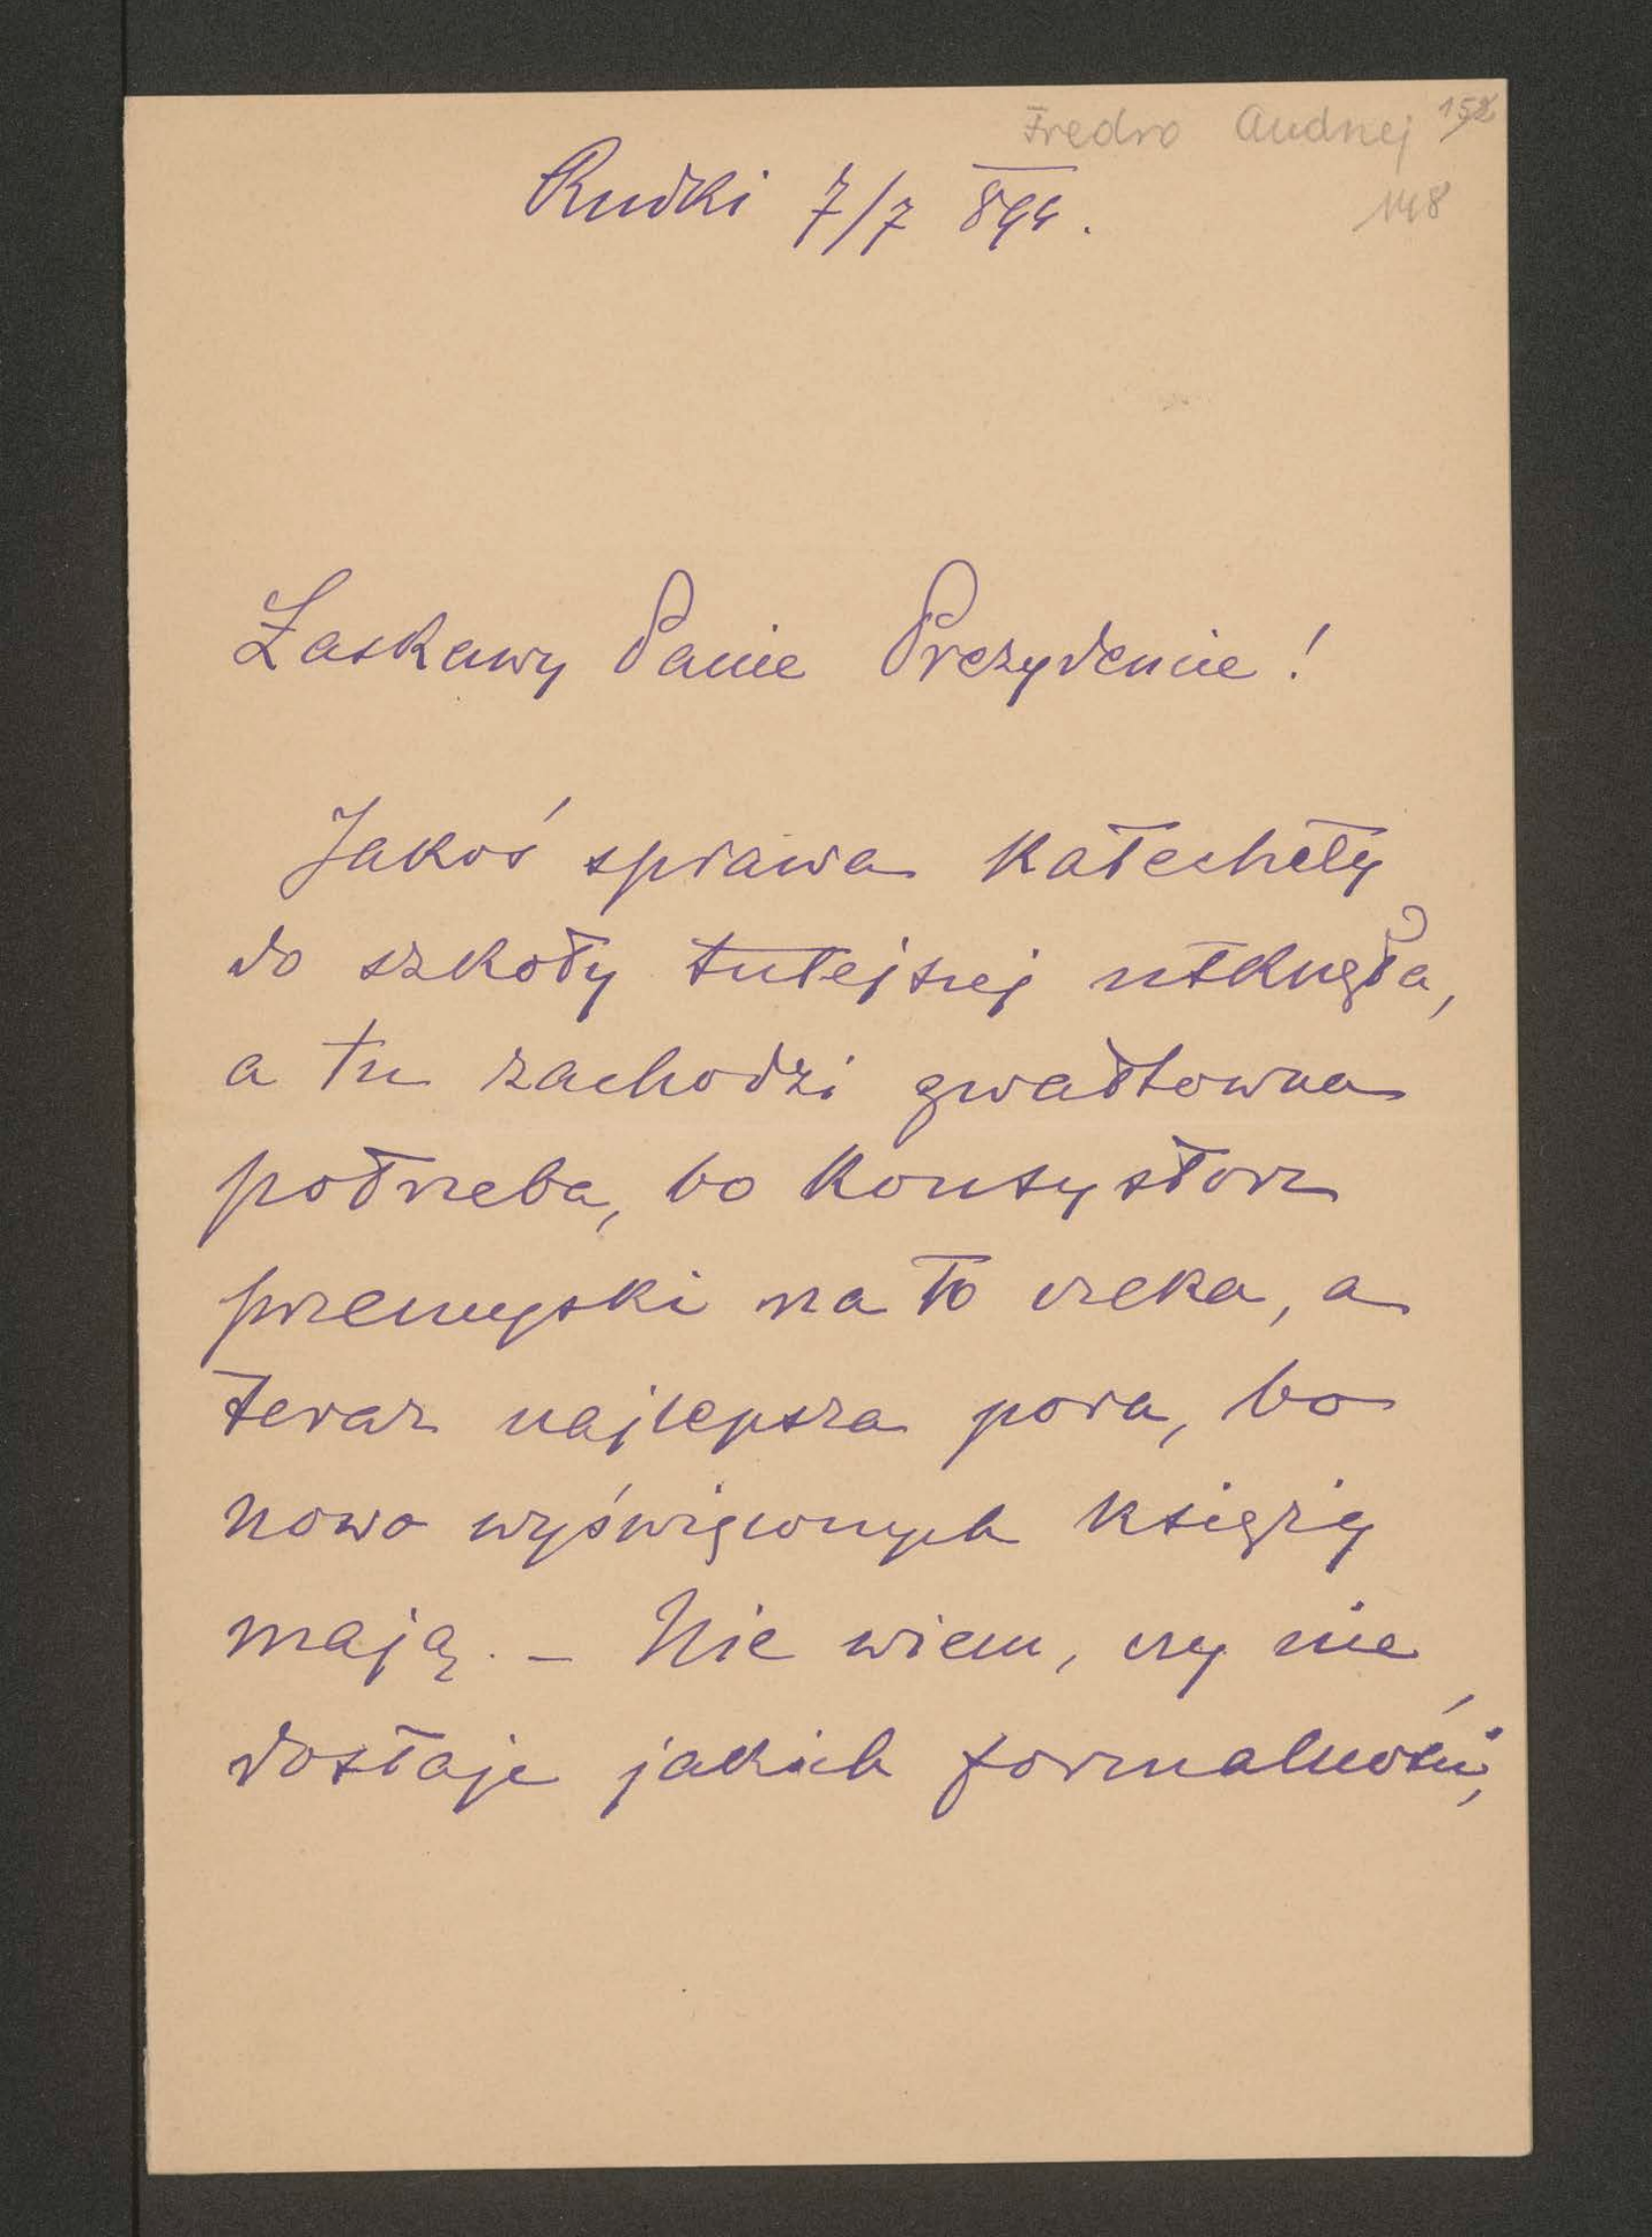 Fredro Andrzej 152
148
Rudki 7/7 894.
Łaskawy Panie Prezydencie!
Jakoś sprawa katechety
do szkoły tutejszej utknęła,
a tu zachodzi gwałtowna
potrzeba, bo Konsystorz
przemyski na to czeka, a
teraz najlepsza pora, bo
nowo wyświęconych księży
mają. – Nie wiem, czy nie
dostaje jakich formalności,